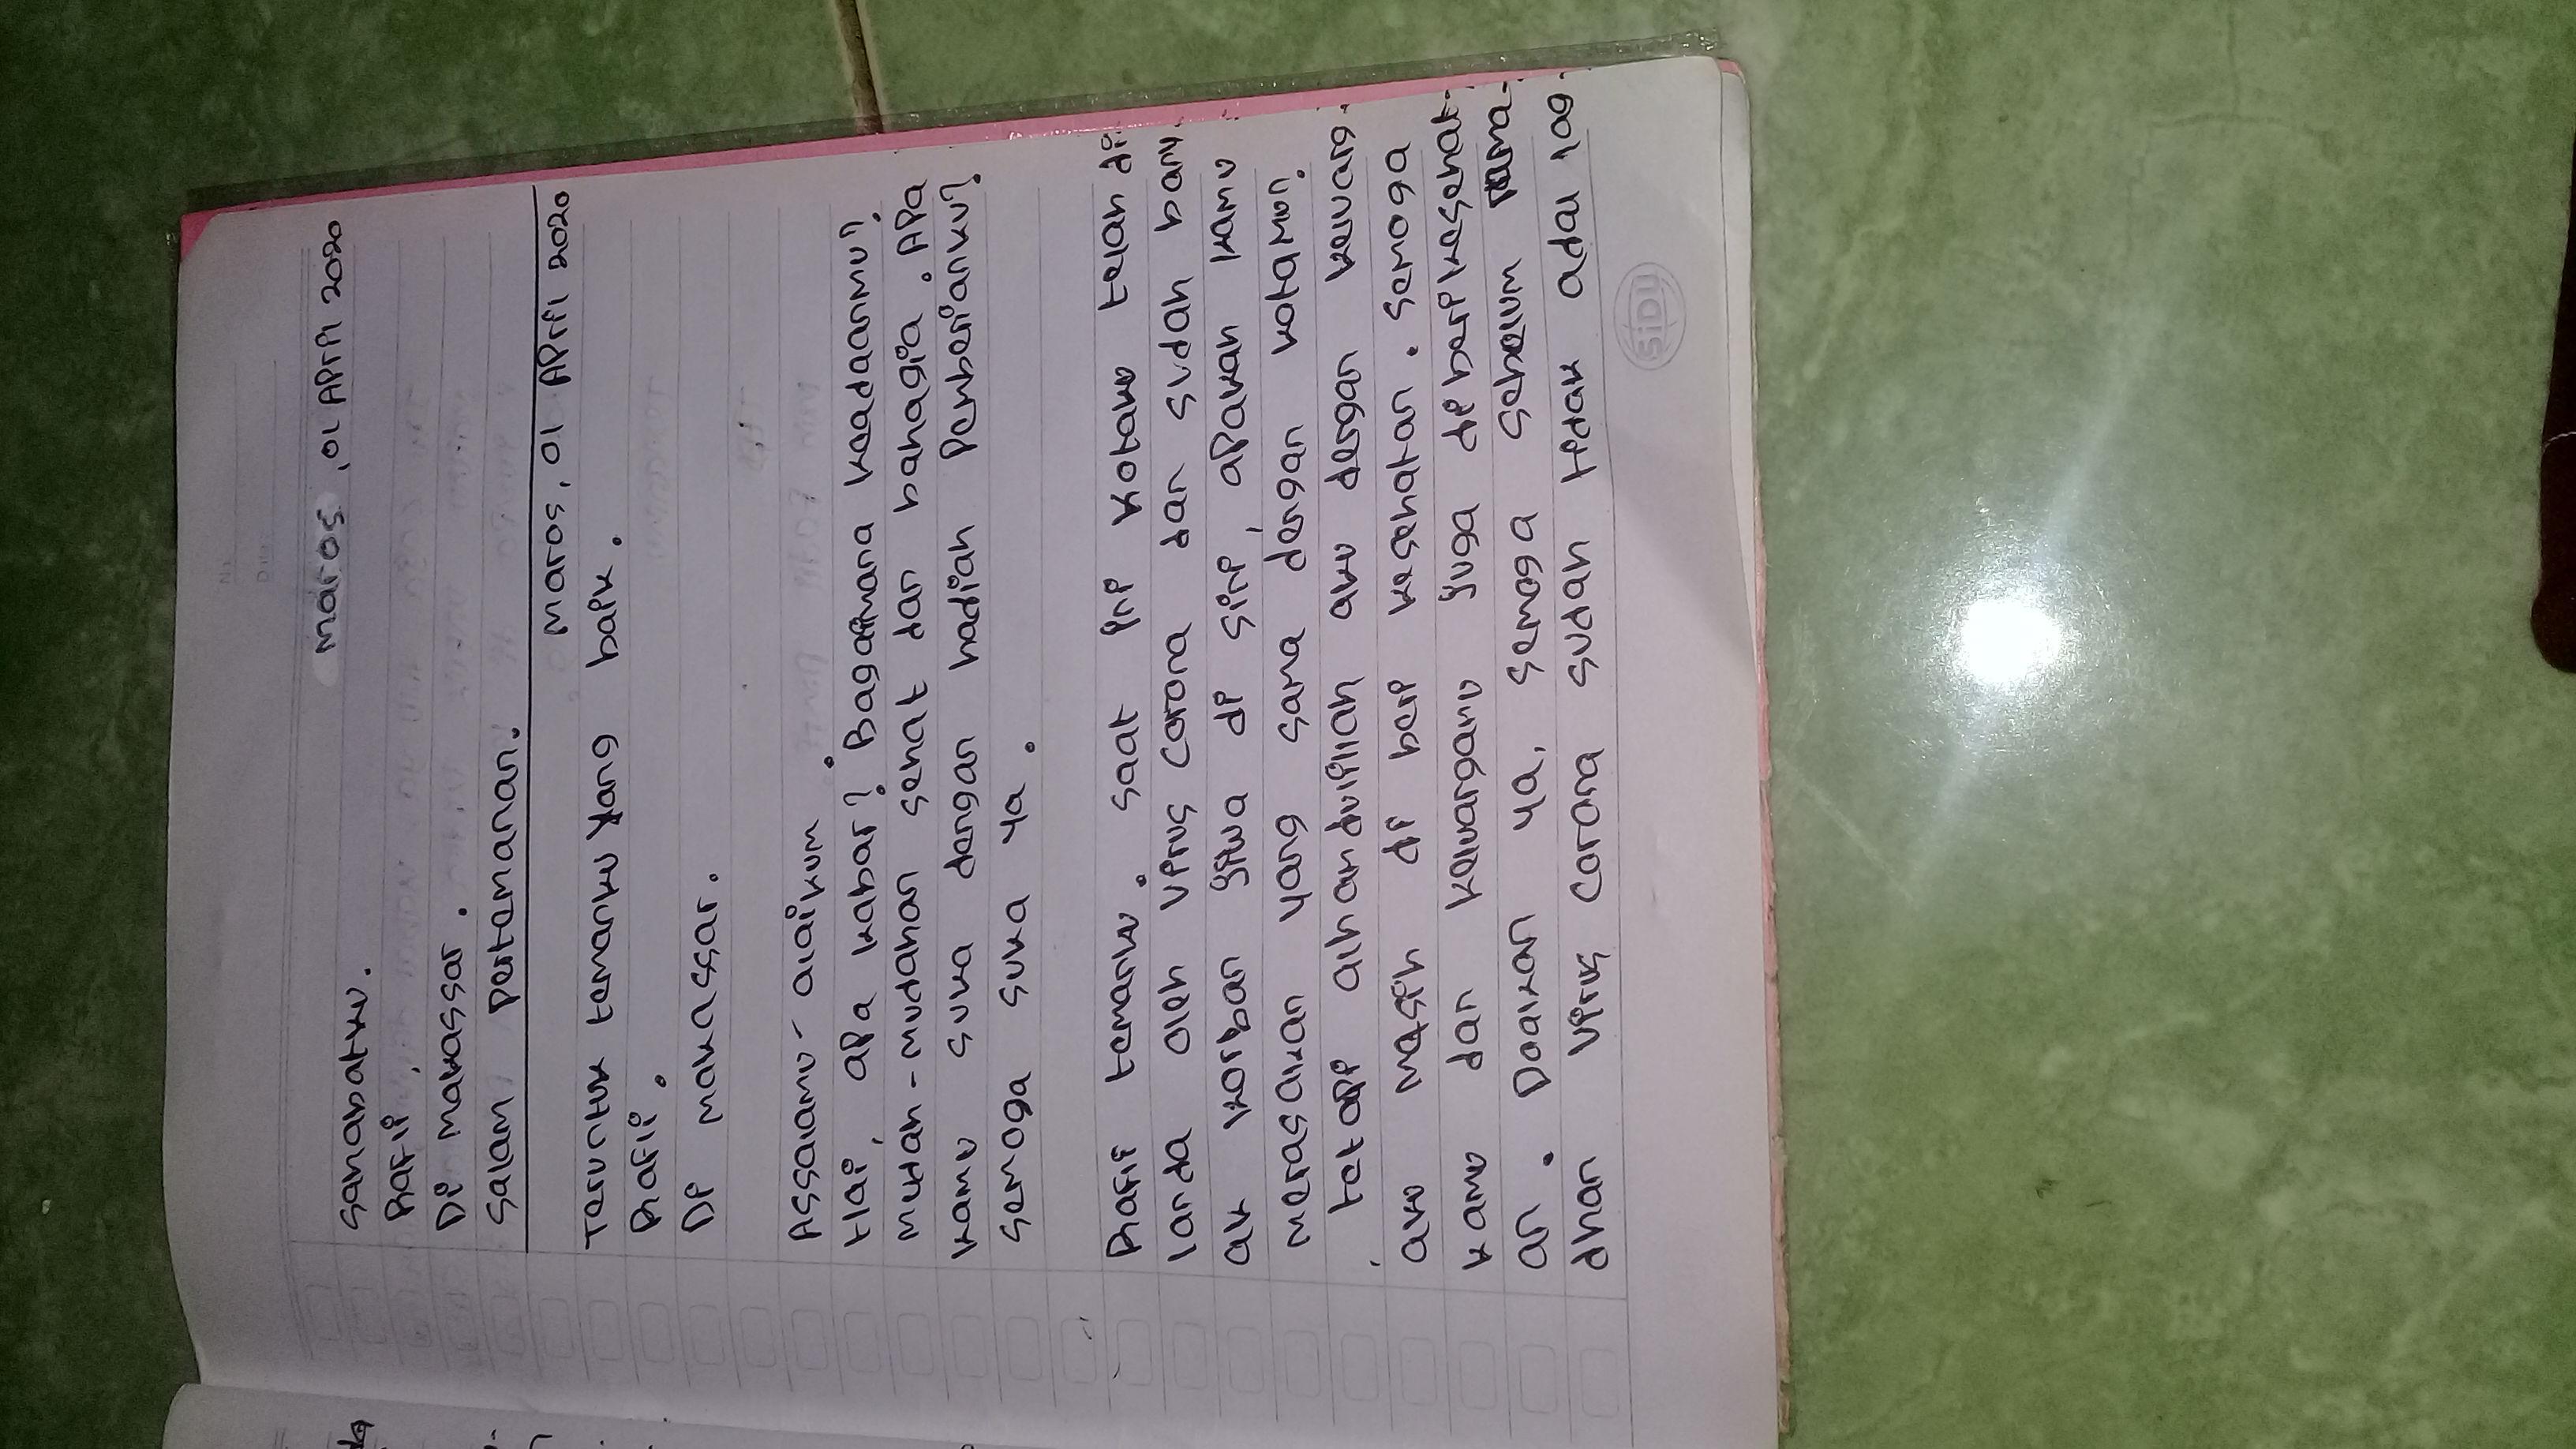 Maros, 01 April 2020
Sahabatku.
Rafii,
Di Makassar.
Salam pertemanan.
Maros, 01 April 2020
Teruntuk temanku yang baik.
Rafii.
Di Makassar.
Assalamu-alaikum.
Hai, apa kabar? Bagaimana keadaanmu?
mudah-mudahan sehat dan bahagia. Apa
kamu suka dengan hadiah pemberianku?
semoga suka ya.
Rafii temanku. saat ini kotaku telah di-
landa oleh virus corona dan sudah bany-
ak korban jiwa di sini, apakah kamu
merasakan yang sama dengan kotamu?
tetapi alhamdulilah aku dengan keluarg-
aku masih di beri kesehatan. semoga
kamu dan keluargamu juga di beri kesehat-
an. Doakan ya, semoga sebelum Rama-
dhan virus corona sudah tidak ada lag-
SiDU